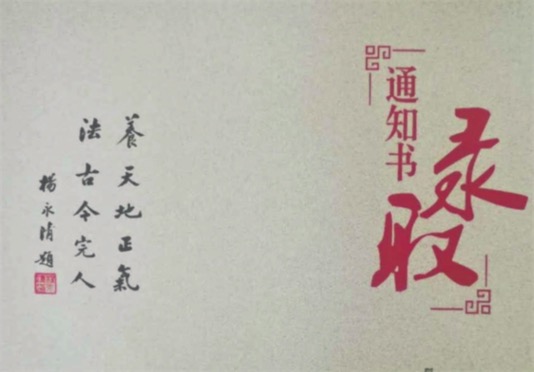 录取
通知书
養天地正氣
法古今完人
楊永清題